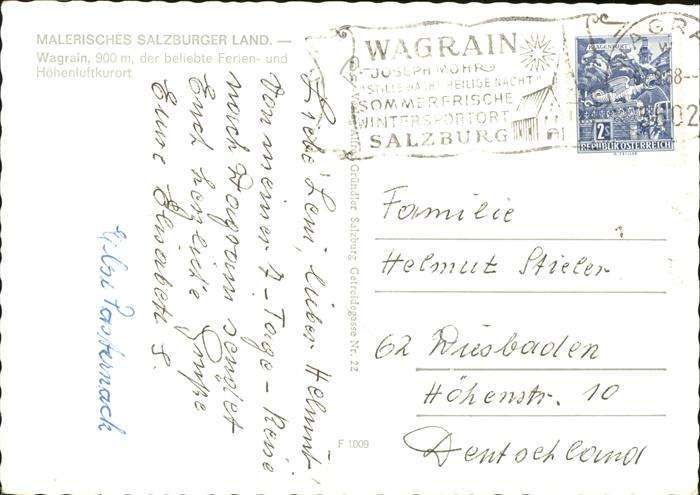 MALERISCHES SALZBURGER LAND. —
Wagrain, 900 m, der beliebte Ferien- und
Höhenluftkurort
WAGRAIN
JOSEPH MOHR
"STILLE NACHT HEILIGE NACHT"
SOMMERFRISCHE
WINTERSPORTORT
SALZBURG
KLAGENFURT
2S
REPUBLIK ÖSTERREICH
Liebe Leni, lieber Helmut,
Von meiner 7-Tage-Reise
nach Wagrain sendet
Euch herzliche Grüße
Eure Elisabeth S.
Pasternack
Gründler Salzburg Getreidegasse Nr. 22
Familie
Helmut Stieler
62 Wiesbaden
Höhenstr. 10
Deutschland
F 1009